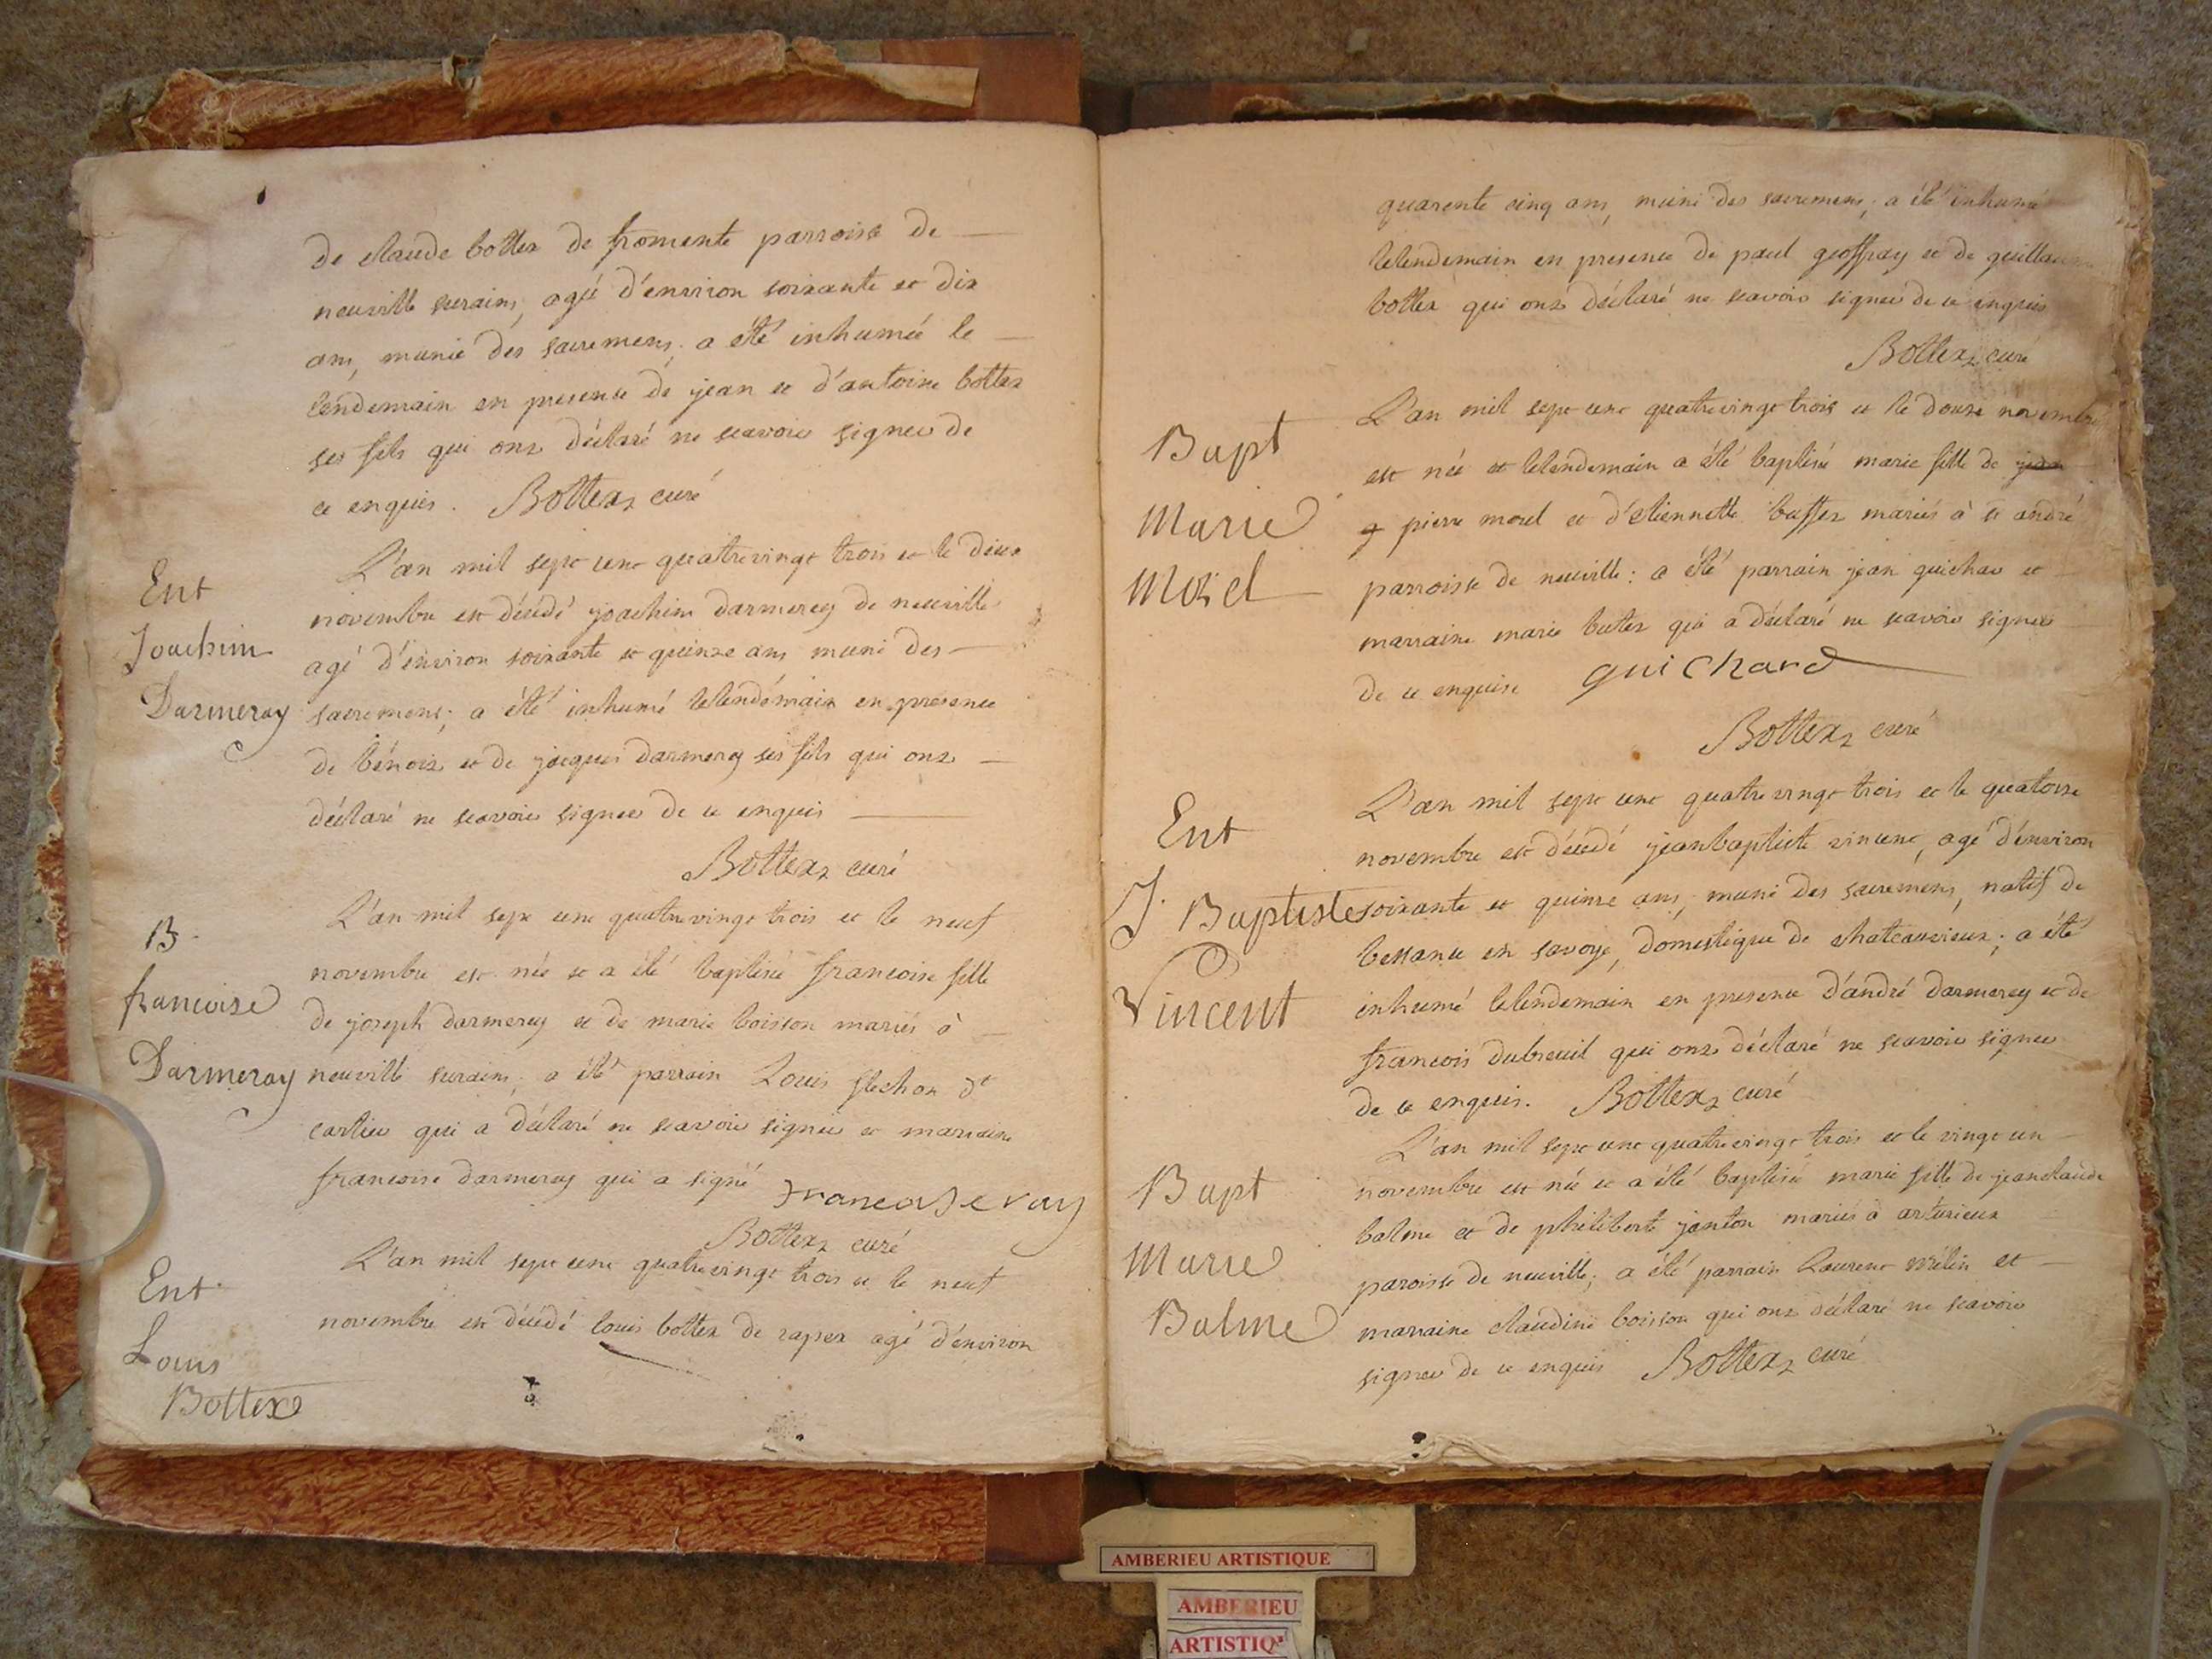 de claude bottex de fromente parroisse de
neuville surains, agée d'environ soixante et dix
ans, munie des sacremens, a été inhumée le
lendemain en presence de jean et d'antoine bottex
ses fils qui ont déclaré ne scavoir signer de
ce enquis. Bottex, curé
Ent
Joachim
Darmeray
L'an mil sept cent quatrevingt trois et le deux
novembre est décédé joachim darmerey de neuville
agé d'environ soixante et quinze ans muni des
sacremens; a été inhumé lelendemain en presence
de bénoit et de jacques darmerey ses fils qui ont
déclaré ne scavoir signer de ce enquis
Bottex, curé
B.
francoise
Darmeray
L'an mil sept cent quatrevingt trois et le neuf
novembre est née et a été baptisée francoise fille
de joseph darmerey et de marie boisson mariés à
neuville surains; a été parrain Louis flechon dt
cartier qui a déclaré ne scavoir signer et marraine
francoise darmerey qui a signé francoise ray
Bottex, curé
Ent
Louis
Bottex
L'an mil sept cent quatrevingt trois et le neuf
novembre est décédé louis bottex de rapex agé d'environ
quarente cinq ans, muni des sacremens; a été inhumé
lelendemain en presence de paul geoffray et de guillaume
bottex qui ont déclaré ne scavoir signer de ce enquis
Bottex, curé
Bapt
Marie
Morel
L'an mil sept cent quatrevingt trois et le douze novembre
est née et lelendemain a été baptisée marie fille de jean
pierre morel et d'etiennette buffex mariés à st andré
parroisse de neuville: a été parrain jean guichar et
marraine marie buttex qui a déclaré ne scavoir signer
de ce enquise guichard
Bottex, curé
Ent
J. Baptiste
Vincent
L'an mil sept cent quatrevingt trois et le quatorze
novembre est décédé jeanbaptiste vincent, agé d'environ
soixante et quinze ans, muni des sacremens, natif de
bessance en savoye, domestique de chateauvieux; a été
inhumé lelendemain en presence d'andré darmerey et de
francois dubreuil qui ont déclaré ne scavoir signer
de ce enquis. Bottex, curé
Bapt
Marie
Balme
L'an mil sept cent quatrevingt trois et le vingt un
novembre est née et a été baptisée marie fille de jeanclaude
balme et de philiberte janton mariés à arturieux
paroisse de neuville; a été parrain Laurent mélin et
marraine claudine boisson qui ont déclaré ne scavoir
signer de ce enquis Bottex, curé
AMBERIEU ARTISTIQUE
AMBERIEU
ARTISTIQ